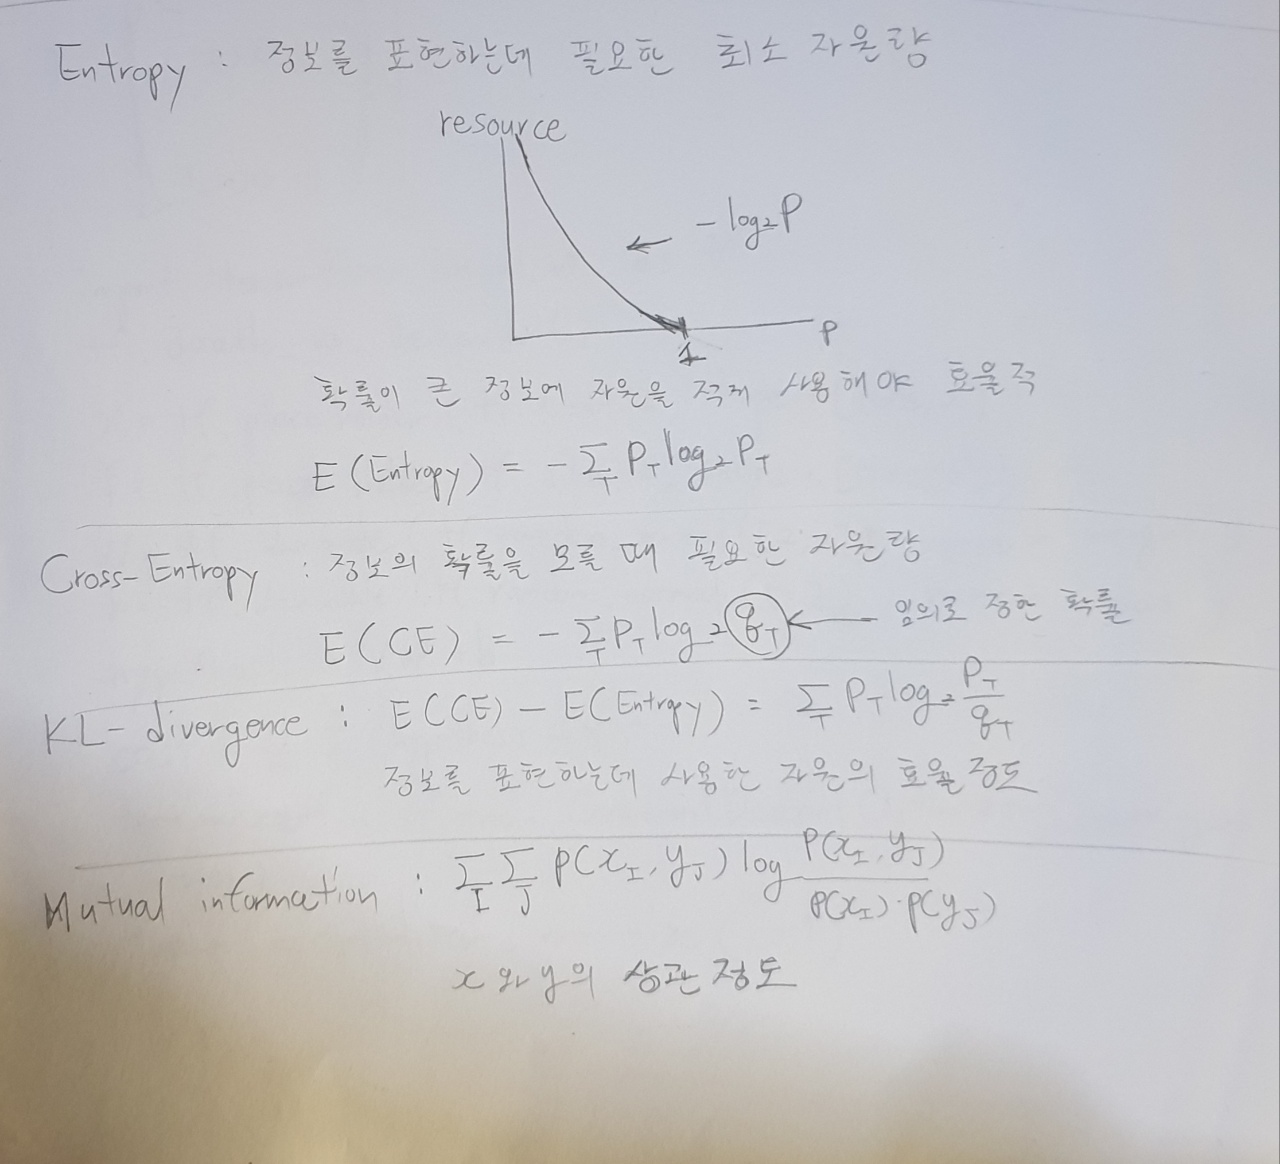 Entropy : 정보를 표현하는데 필요한 최소 자원량
resource
- log₂P
P
1
확률이 큰 정보에 자원을 적게 사용해야 효율적
E (Entropy) = - Σ_T P_T log₂ P_T
Cross-Entropy : 정보의 확률을 모를 때 필요한 자원량
E (CE) = - Σ_T P_T log₂ q_T ← 임의로 정한 확률
KL-divergence : E(CE) - E(Entropy) = Σ_T P_T log₂ P_T / q_T
정보를 표현하는데 사용한 자원의 효율 정도
Mutual information : Σ_I Σ_J P(x_I, y_J) log P(x_I, y_J) / P(x_I)·P(y_J)
x와 y의 상관 정도